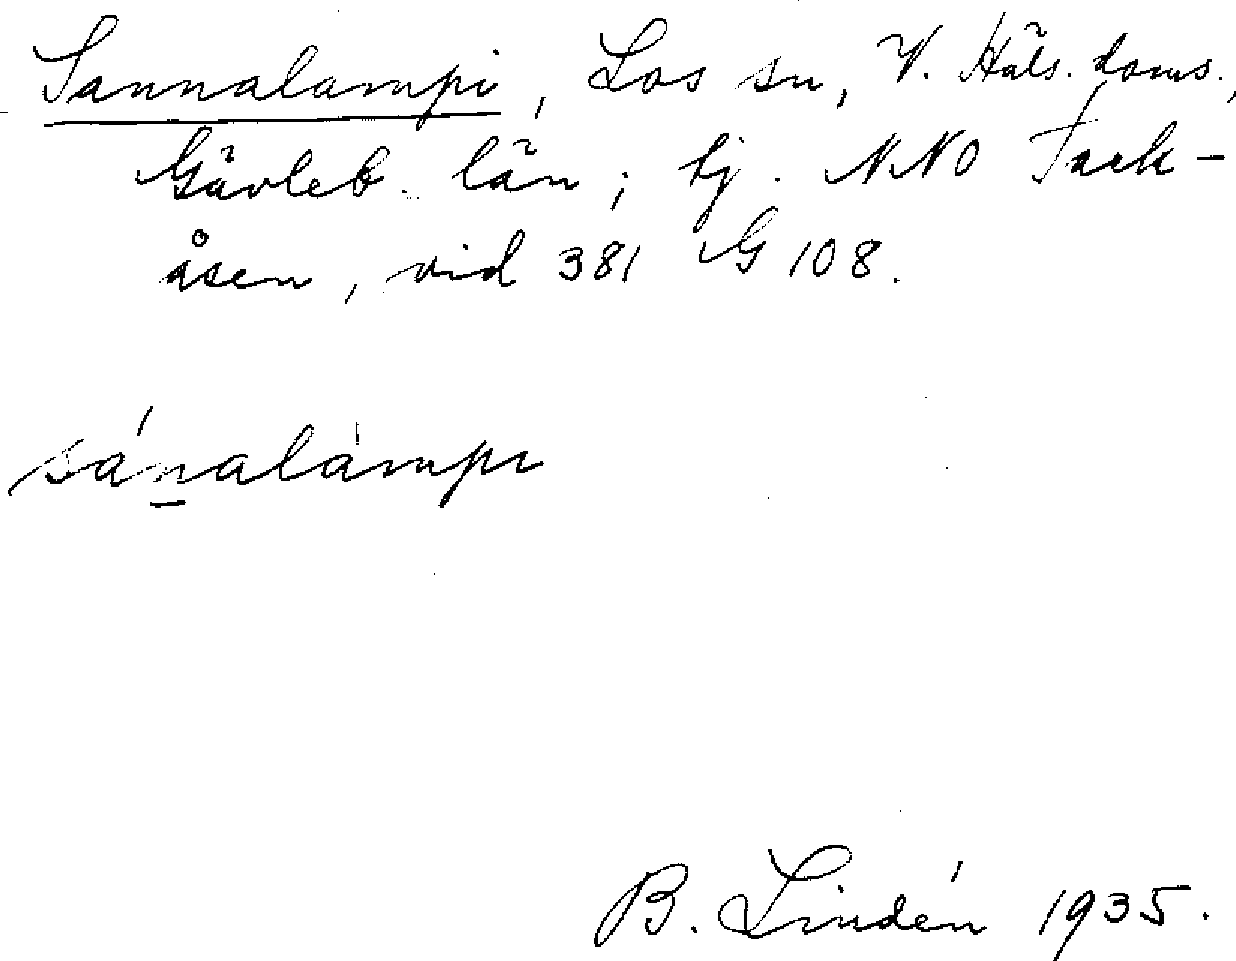 Sannalampi, Los sn, V. Häls. doms.,
Gävleb. län; tj. NNO Tack-
åsen, vid 381 G 108.
sánalàmpi
B. Lindén 1935.